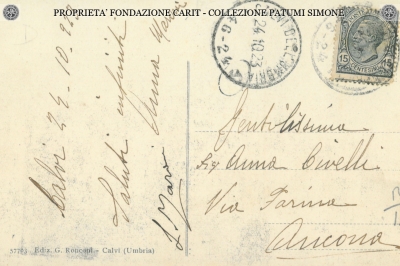 PROPRIETA' FONDAZIONE CARIT - COLLEZIONE PATUMI SIMONE
Calvi 24.10.23
Saluti infiniti
Anna
CALVI DELL'UMBRIA
24.10.23
46-24
15
Gentilissima
Sig Anna Civelli
Via Farina
Ancona
52763 Ediz. G. Ronconi - Calvi (Umbria)